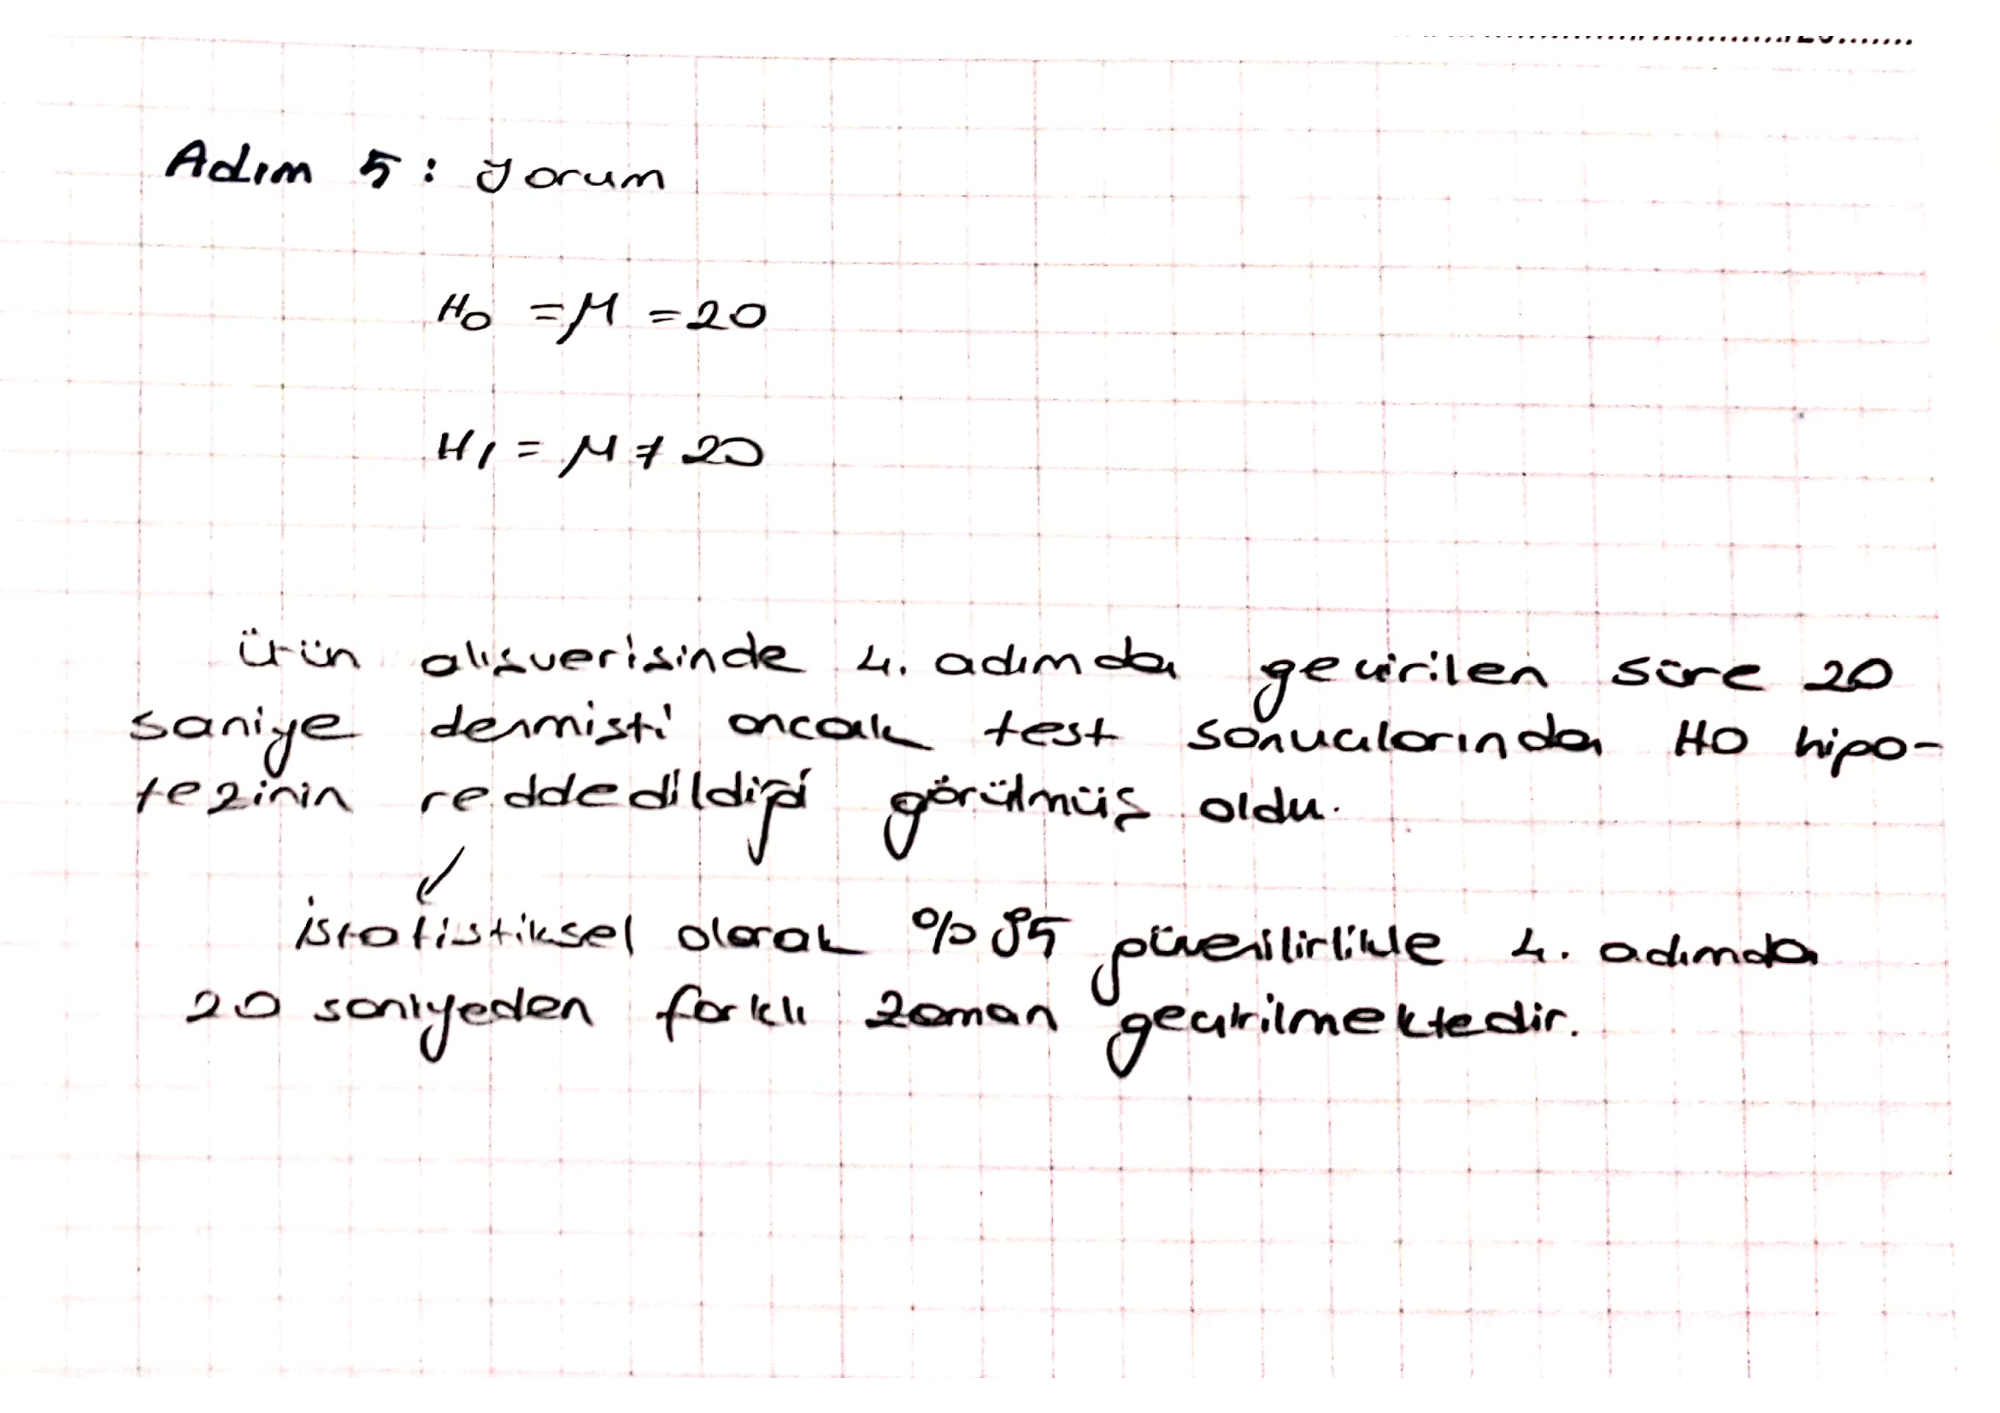 Adım 5: Yorum
H0 = μ = 20
H1 = μ ≠ 20
ürün alışverisinde 4. adımda gecirilen süre 20
saniye denmişti ancak test sonuclarında HO hipo-
tezinin reddedildiği görülmüş oldu.
istatistiksel olarak %95 güvenilirlikle 4. adımda
20 saniyeden farklı zaman gecirilmektedir.